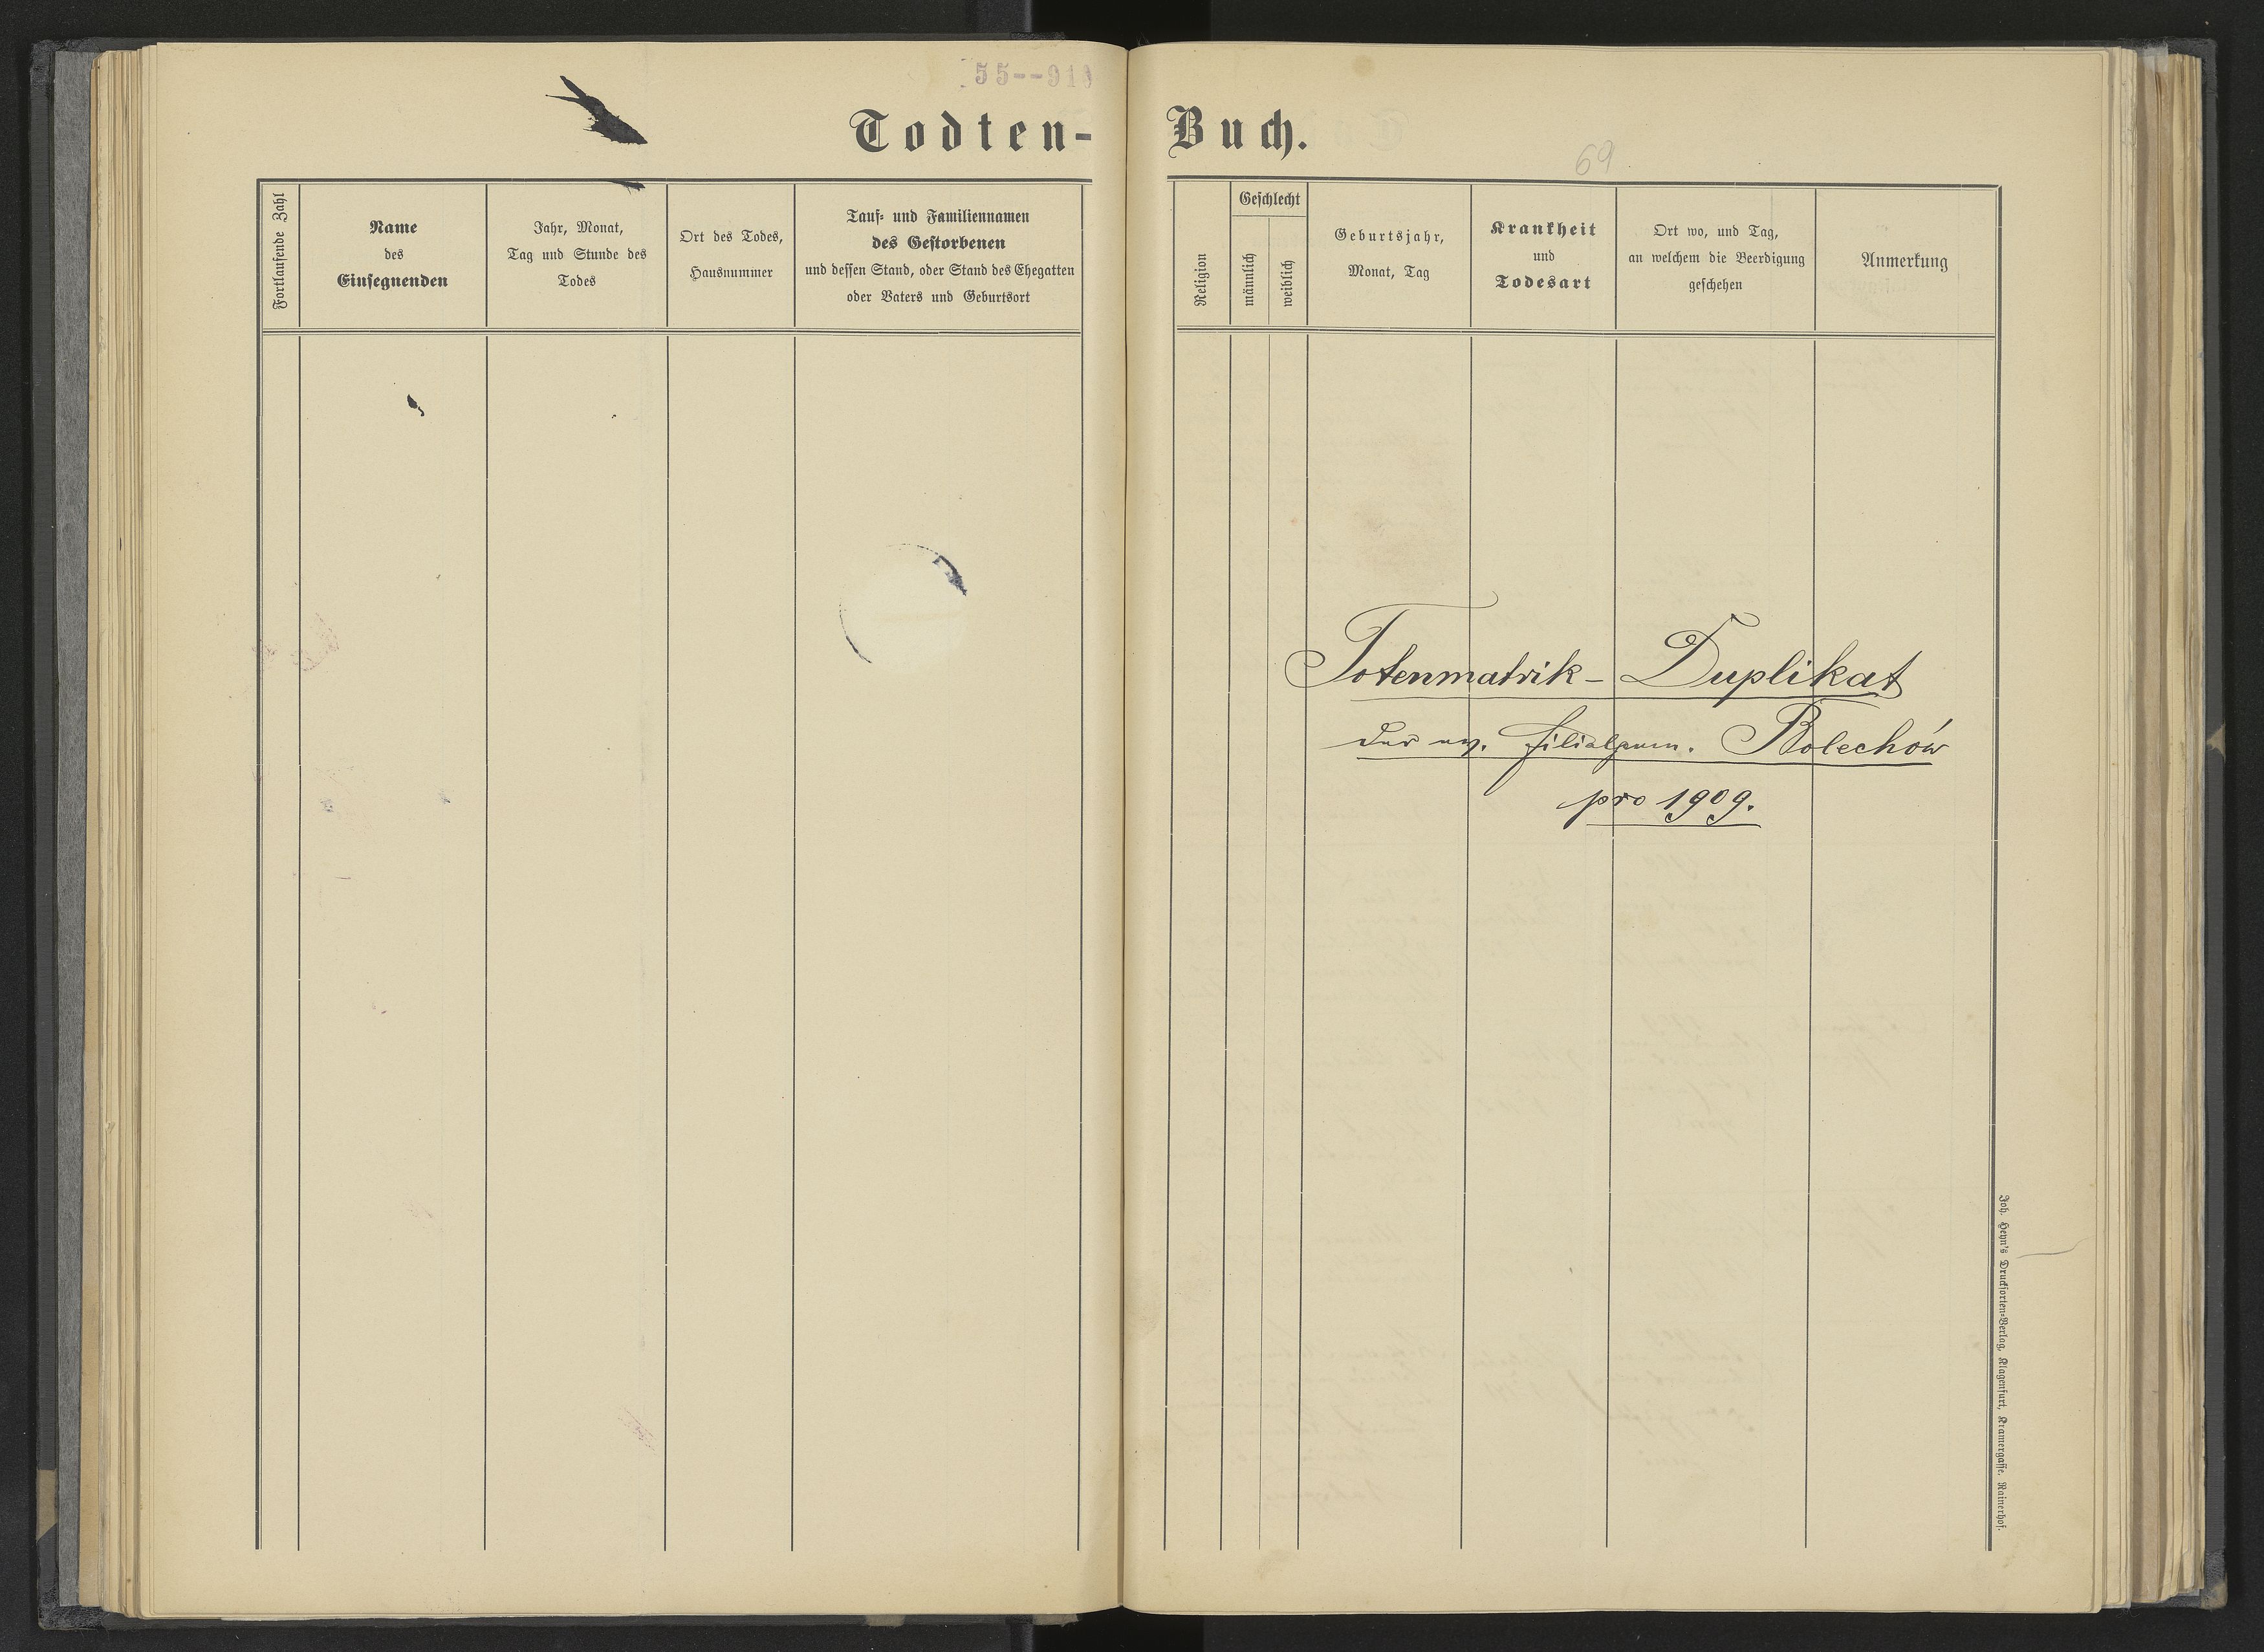 55--910
Todten-
Fortlaufende Zahl
Name
des
Einsegnenden
Jahr, Monat,
Tag und Stunde des
Todes
Ort des Todes,
Hausnummer
Tauf- und Familiennamen
des Gestorbenen
und dessen Stand, oder Stand des Ehegatten
oder Vaters und Geburtsort
Buch.
69
Religion
Geschlecht
männlich
weiblich
Geburtsjahr,
Monat, Tag
Krankheit
und
Todesart
Ort wo, und Tag,
an welchem die Beerdigung
geschehen
Anmerkung
Totenmatrik- Duplikat
der ev. Filialgem. Bolechów
pro 1909.
Joh. Heyn's Drucksorten-Verlag, Klagenfurt, Kramergasse, Rainerhof.